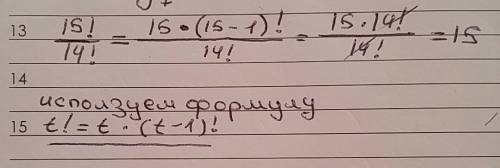 13 15!/14! = 15·(15-1)!/14! = 15·14!/14! = 15
14
исползуем формулу
15 t! = t · (t-1)!